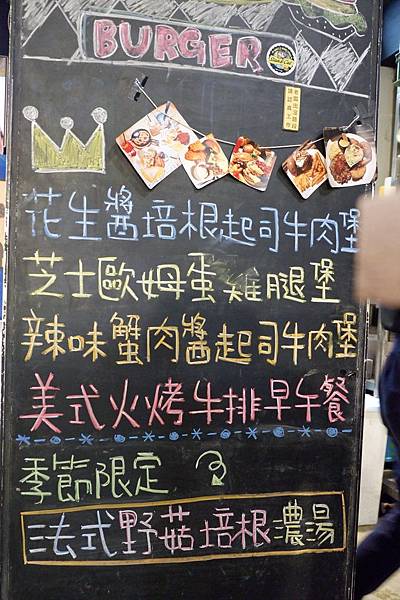 BURGER
花生醬培根起司牛肉堡
芝士歐姆蛋雞腿堡
辣味蟹肉醬起司牛肉堡
美式火烤牛排早午餐
季節限定
法式野菇培根濃湯